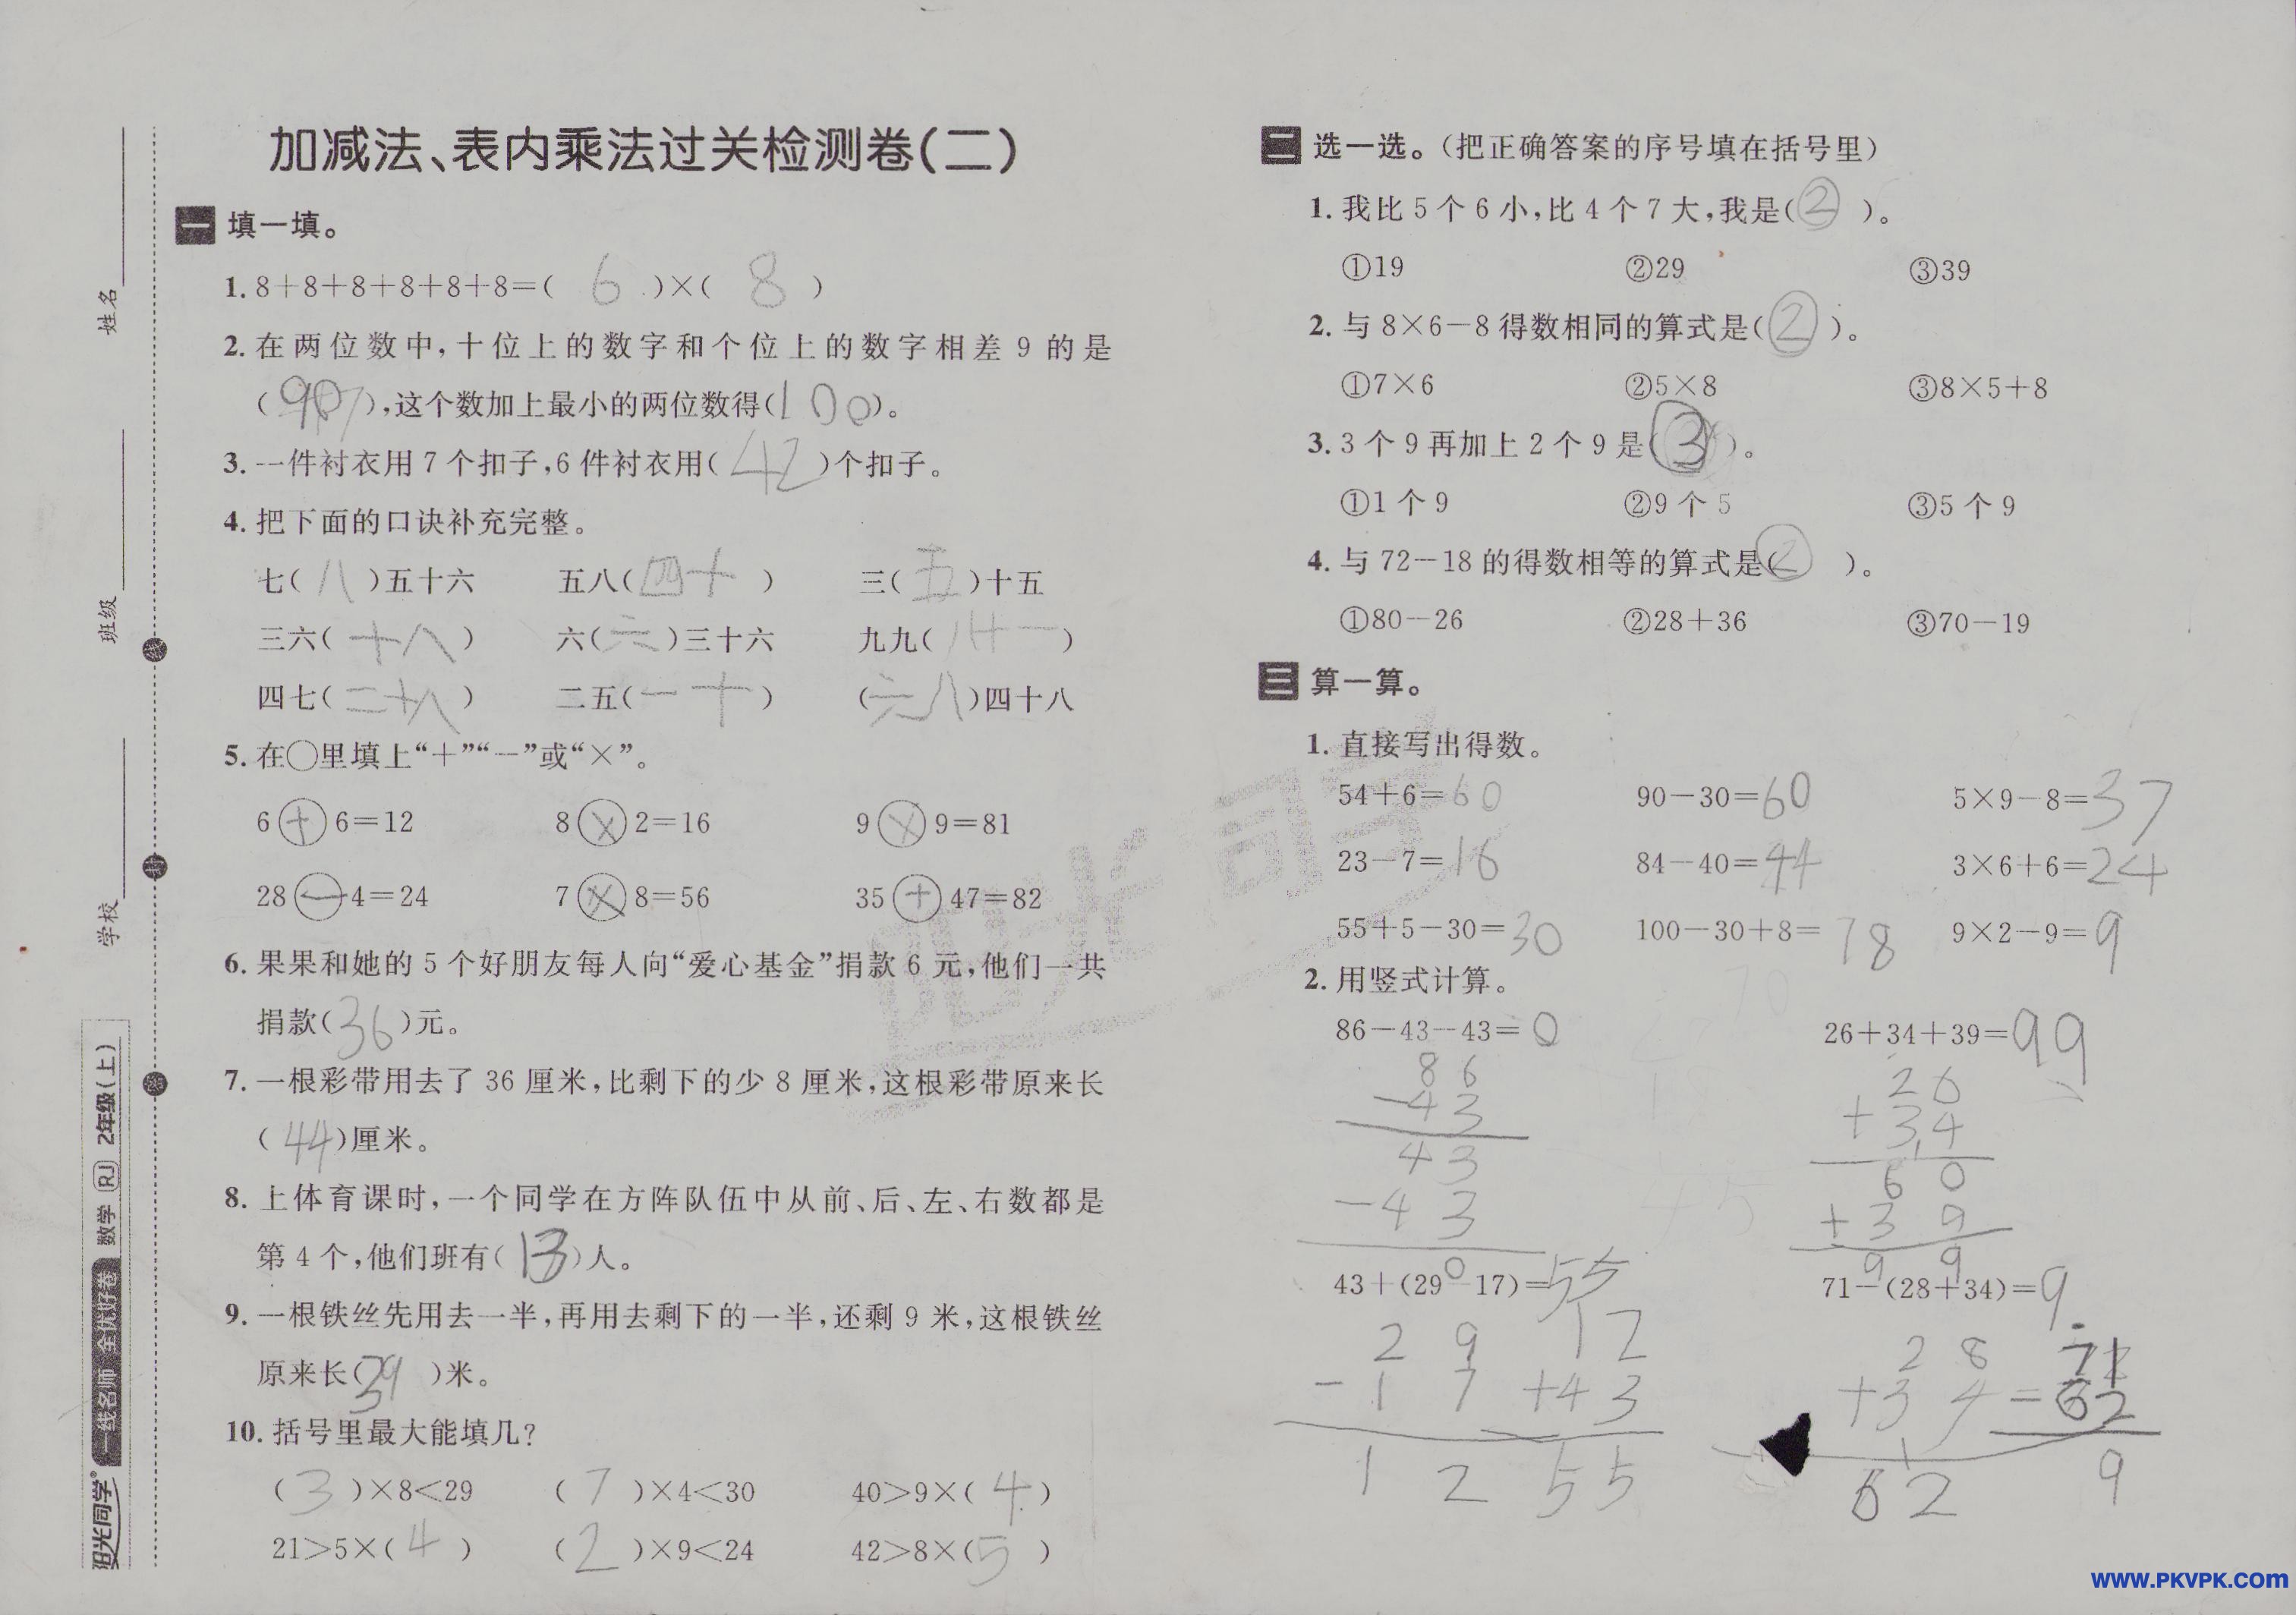 加减法、表内乘法过关检测卷(二)
一 填一填。
1. 8+8+8+8+8+8=( 6 )×( 8 )
2. 在两位数中,十位上的数字和个位上的数字相差 9 的是
( 90 ),这个数加上最小的两位数得(100)。
3. 一件衬衣用 7 个扣子,6 件衬衣用( 42 )个扣子。
4. 把下面的口诀补充完整。
七( 八 )五十六 五八( 四十 ) 三( 五 )十五
三六( 十八 ) 六( 六 )三十六 九九( 八十一 )
四七( 二十八 ) 二五( 一十 ) ( 六八 )四十八
5. 在○里填上“+”“-”或“×”。
6 + 6=12 8 × 2=16 9 × 9=81
28 - 4=24 7 × 8=56 35 + 47=82
6. 果果和她的 5 个好朋友每人向“爱心基金”捐款 6 元,他们一共
捐款( 36 )元。
7. 一根彩带用去了 36 厘米,比剩下的少 8 厘米,这根彩带原来长
( 44 )厘米。
8. 上体育课时,一个同学在方阵队伍中从前、后、左、右数都是
第 4 个,他们班有( 13 )人。
9. 一根铁丝先用去一半,再用去剩下的一半,还剩 9 米,这根铁丝
原来长( )米。
10. 括号里最大能填几?
( 3 )×8<29 ( 7 )×4<30 40>9×( 4 )
21>5×( 4 ) ( 2 )×9<24 42>8×( 5 )
二 选一选。(把正确答案的序号填在括号里)
1. 我比 5 个 6 小,比 4 个 7 大,我是( ② )。
①19 ②29 ③39
2. 与 8×6-8 得数相同的算式是( ② )。
①7×6 ②5×8 ③8×5+8
3. 3 个 9 再加上 2 个 9 是( ③ )。
①1 个 9 ②9 个 5 ③5 个 9
4. 与 72-18 的得数相等的算式是( ② )。
①80-26 ②28+36 ③70-19
三 算一算。
1. 直接写出得数。
54+6=60 90-30=60 5×9-8=37
23-7=16 84-40=44 3×6+6=24
55+5-30=30 100-30+8=78 9×2-9=9
2. 用竖式计算。
86-43-43=0 26+34+39=99
86 26
-43 +34
43 60
-43 +39
0 99
43+(29-17)=55 71-(28+34)=9
29 12 28 71
-17 +43 +34 -62
12 55 62 9
姓名
班级
学校
阳光同学 一线名师 全优好卷 数学 RJ 2年级(上)
阳光同学
www.PKVPK.com